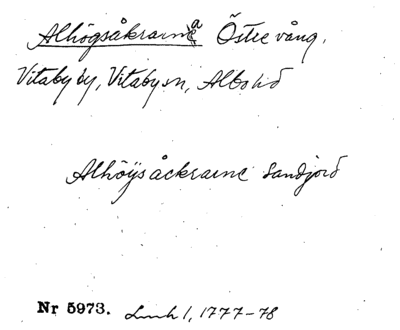 Alhögsåkrarna Östre vång.
Vitaby by, Vitaby sn, Albo hd
Alhöÿsåckrarne Sandjord
Nr 5973. Lmh 1, 1777-78